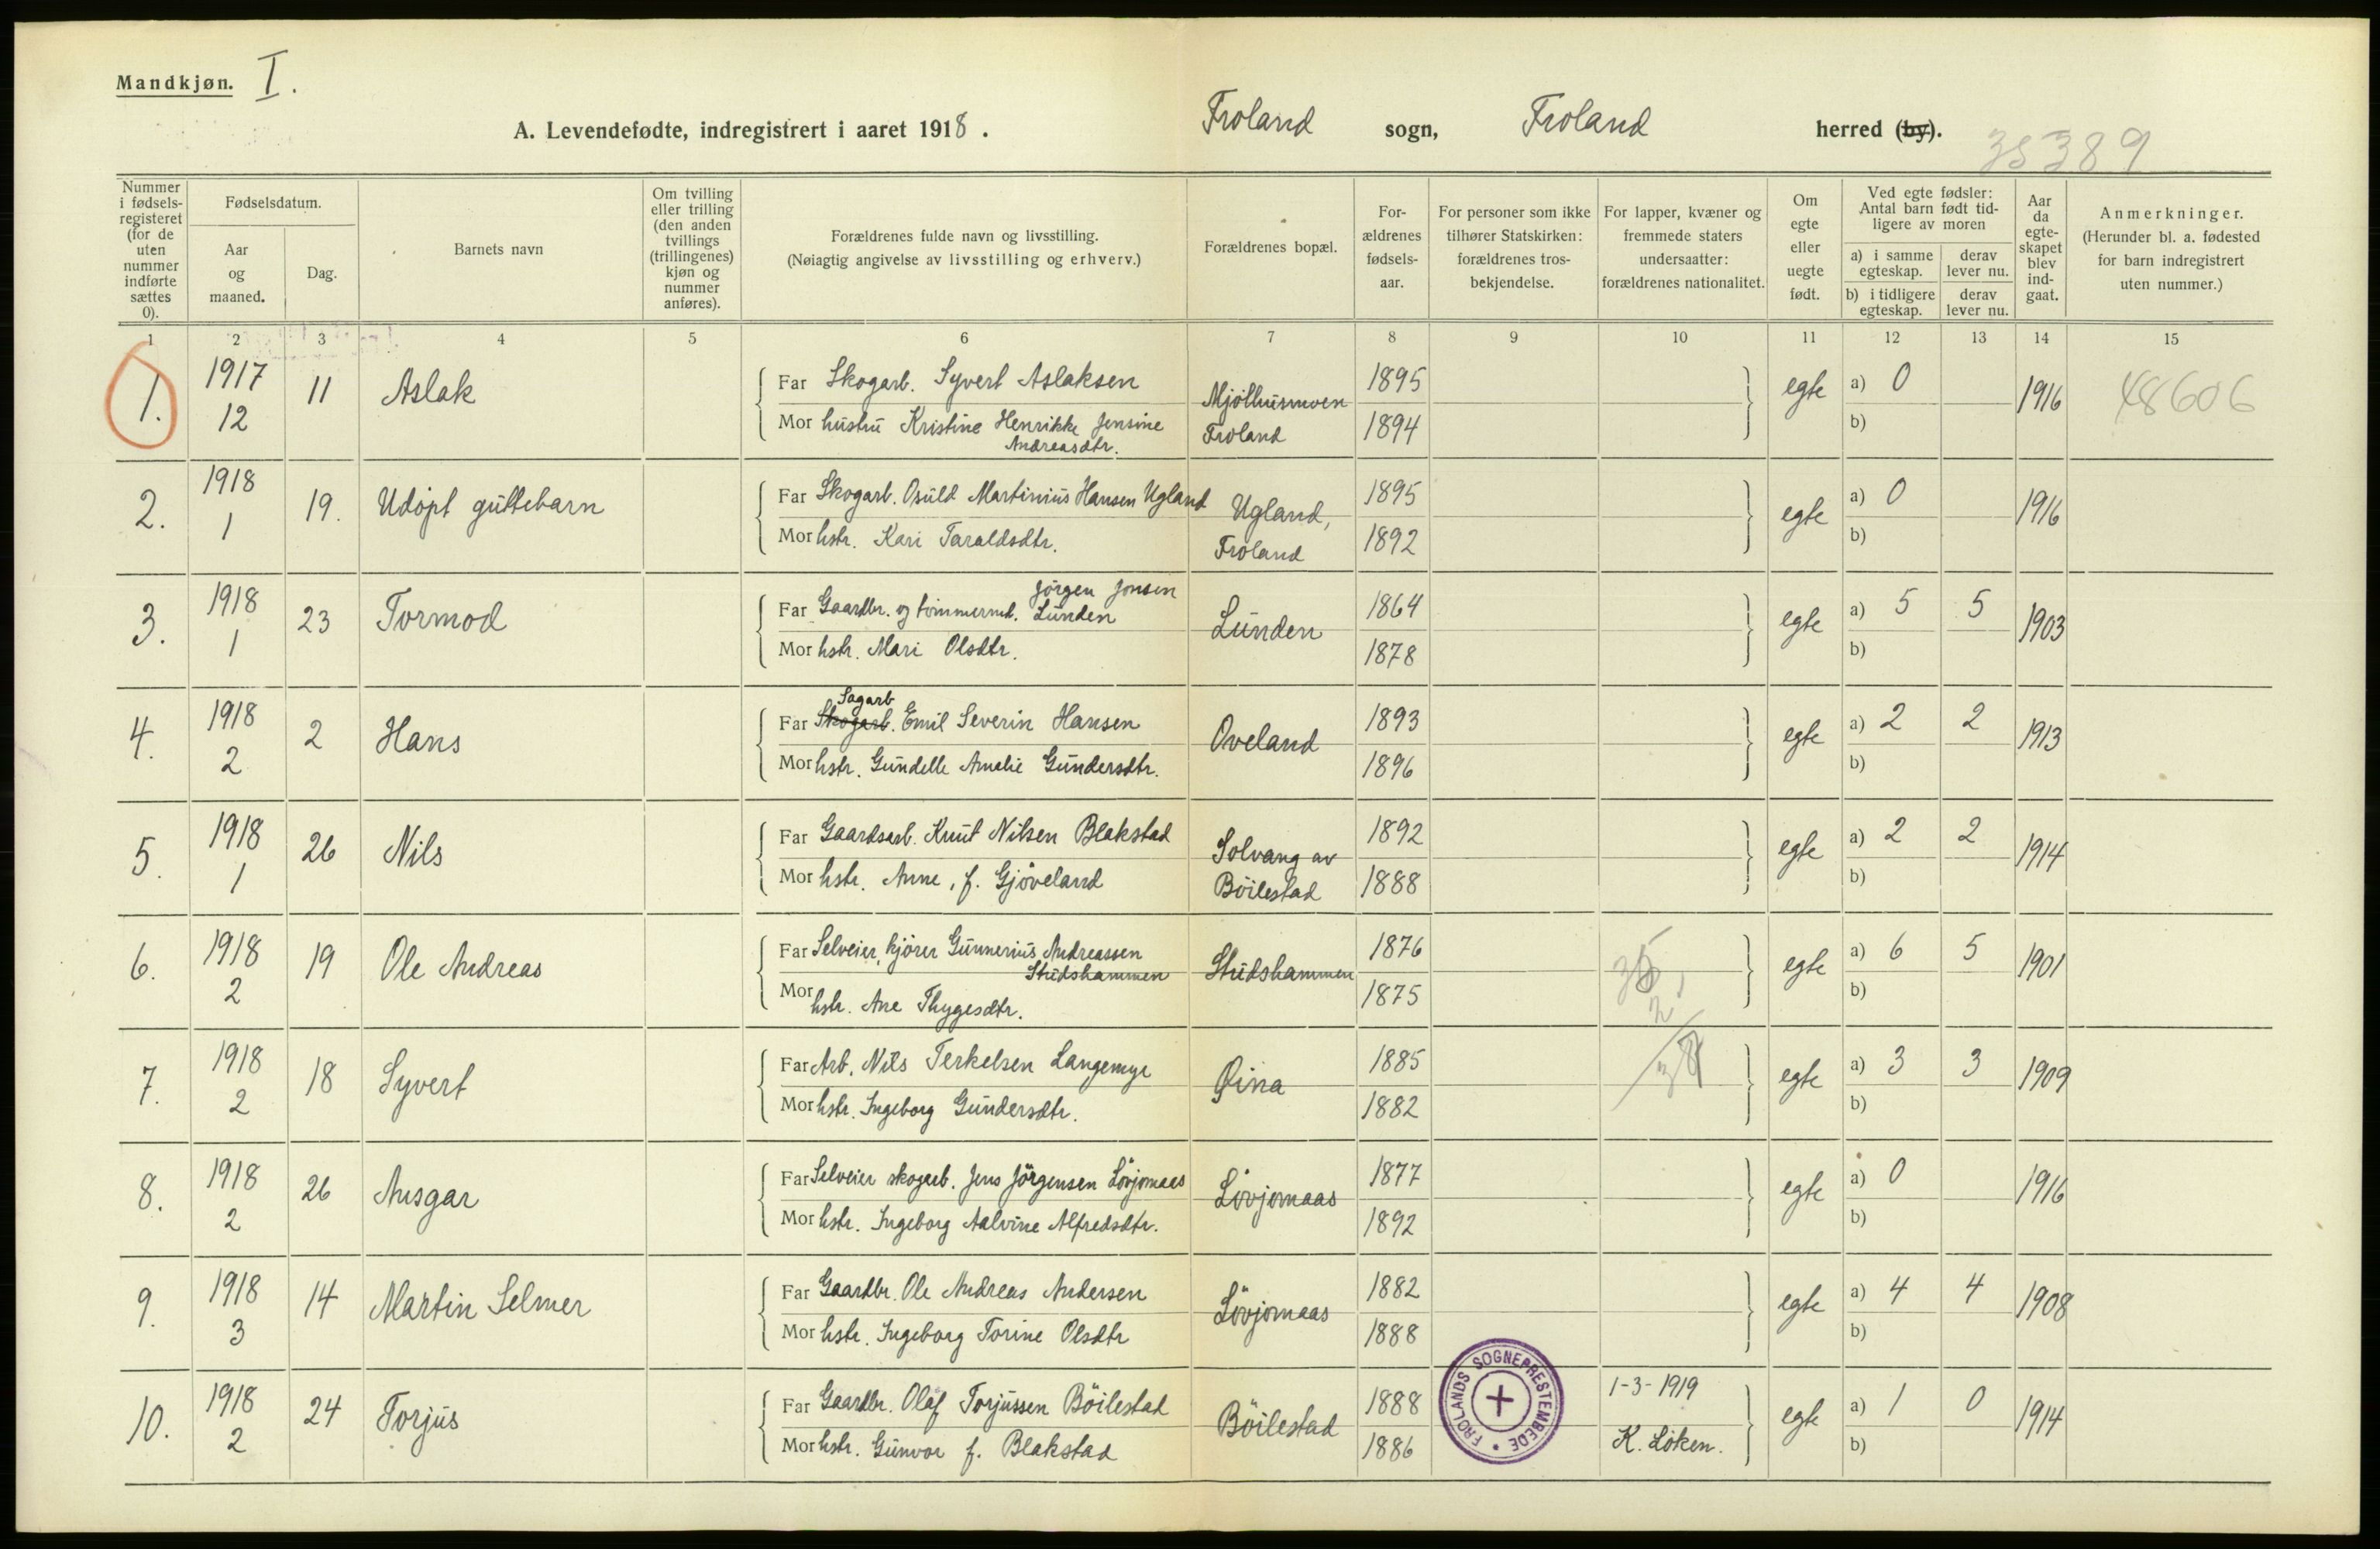 Mandkjøn. I.
A. Levendefødte, indregistrert i aaret 1918. Froland sogn, Froland herred (by).
35389
Nummer i fødselsregisteret (for de uten nummer indførte sættes 0).
Fødselsdatum.
Aar og maaned.
Dag.
Barnets navn
Om tvilling eller trilling (den anden tvillings (trillingenes) kjøn og nummer anføres).
Forældrenes fulde navn og livsstilling.
(Nøiagtig angivelse av livsstilling og erhverv.)
Forældrenes bopæl.
Forældrenes fødselsaar.
For personer som ikke tilhører Statskirken: forældrenes trosbekjendelse.
For lapper, kvæner og fremmede staters undersaatter: forældrenes nationalitet.
Om egte eller uegte født.
Ved egte fødsler: Antal barn født tidligere av moren
a) i samme egteskap. derav lever nu.
b) i tidligere egteskap. derav lever nu.
Aar da egteskapet blev indgaat.
Anmerkninger.
(Herunder bl. a. fødested for barn indregistrert uten nummer.)
1 2 3 4 5 6 7 8 9 10 11 12 13 14 15
1. 1917 12 11 Aslak
Far Skogarb. Syvert Aslaksen
Mor hustru Kristine Henrikke Jensine Andreasdtr.
Mjölhusmoen Froland 1895 1894 egte a) 0 b) 1916 48606
2. 1918 1 19. Udöpt guttebarn
Far Skogarb. Osuld Martinius Hansen Ugland
Mor hstr. Kari Taraldsdtr.
Ugland, Froland 1895 1892 egte a) 0 b) 1916
3. 1918 1 23 Tormod
Far Gaardbr. og tömmerm. Jörgen Jonsen Lunden
Mor hstr. Mari Olsdtr.
Lunden 1864 1878 egte a) 5 5 b) 1903
4. 1918 2 2 Hans
Far Skogarb. Sagarb Emil Severin Hansen
Mor hstr. Gundelle Amelie Gundersdtr.
Oveland 1893 1896 egte a) 2 2 b) 1913
5. 1918 1 26 Nils
Far Gaardsarb. Knut Nilsen Blakstad
Mor hstr. Anne, f. Gjöveland
Solvang av Böilestad 1892 1888 egte a) 2 2 b) 1914
6. 1918 2 19 Ole Andreas
Far Selveier, kjörer Gunnerius Andreassen Studshammen
Mor hstr. Ane Thygesdtr.
Studshammen 1876 1875 egte a) 6 5 b) 1901
7. 1918 2 18 Syvert
Far Arb. Nils Terkelsen Langemyr
Mor hstr. Ingeborg Gundersdtr.
Øina 1885 1882 egte a) 3 3 b) 1909
8. 1918 2 26 Ansgar
Far Selveier skogarb. Jens Jörgensen Lövjomaas
Mor hstr. Ingeborg Aalvine Alfredsdtr.
Lövjomaas 1877 1892 egte a) 0 b) 1916
9. 1918 3 14 Martin Selmer
Far Gaardbr. Ole Andreas Andersen
Mor hstr. Ingeborg Torine Olsdtr
Lövjomaas 1882 1888 egte a) 4 4 b) 1908
10. 1918 2 24 Torjus
Far Gaardbr. Olaf Torjussen Böilestad
Mor hstr. Gunvor f. Blakstad
Böilestad 1888 1886 egte a) 1 0 b) 1914
FROLANDS SOGNEPRESTEMBEDE
1-3-1919
K. Löken.